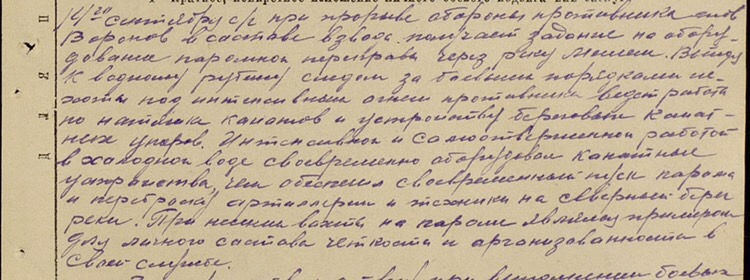 14го сентября с/г при прорыве обороны противника тов
Воронов в составе взвода получает задание на обору-
дование паромной переправы через реку Мемеле. Выйдя
к водному рубежу следом за боевыми порядками пе-
хоты под интенсивным огнем противника ведет работы
по натяжке канатов и устройству береговых канат-
ных упоров. Интенсивной и самоотверженной работой
в холодной воде своевременно оборудовал канатные
устройства, чем обеспечил своевременный пуск парома
и переброску артиллерии и техники на северный берег
реки. При несении вахты на пароме являлся примером
для личного состава четкости и организованности в
своей службе.
при выполнении боевых